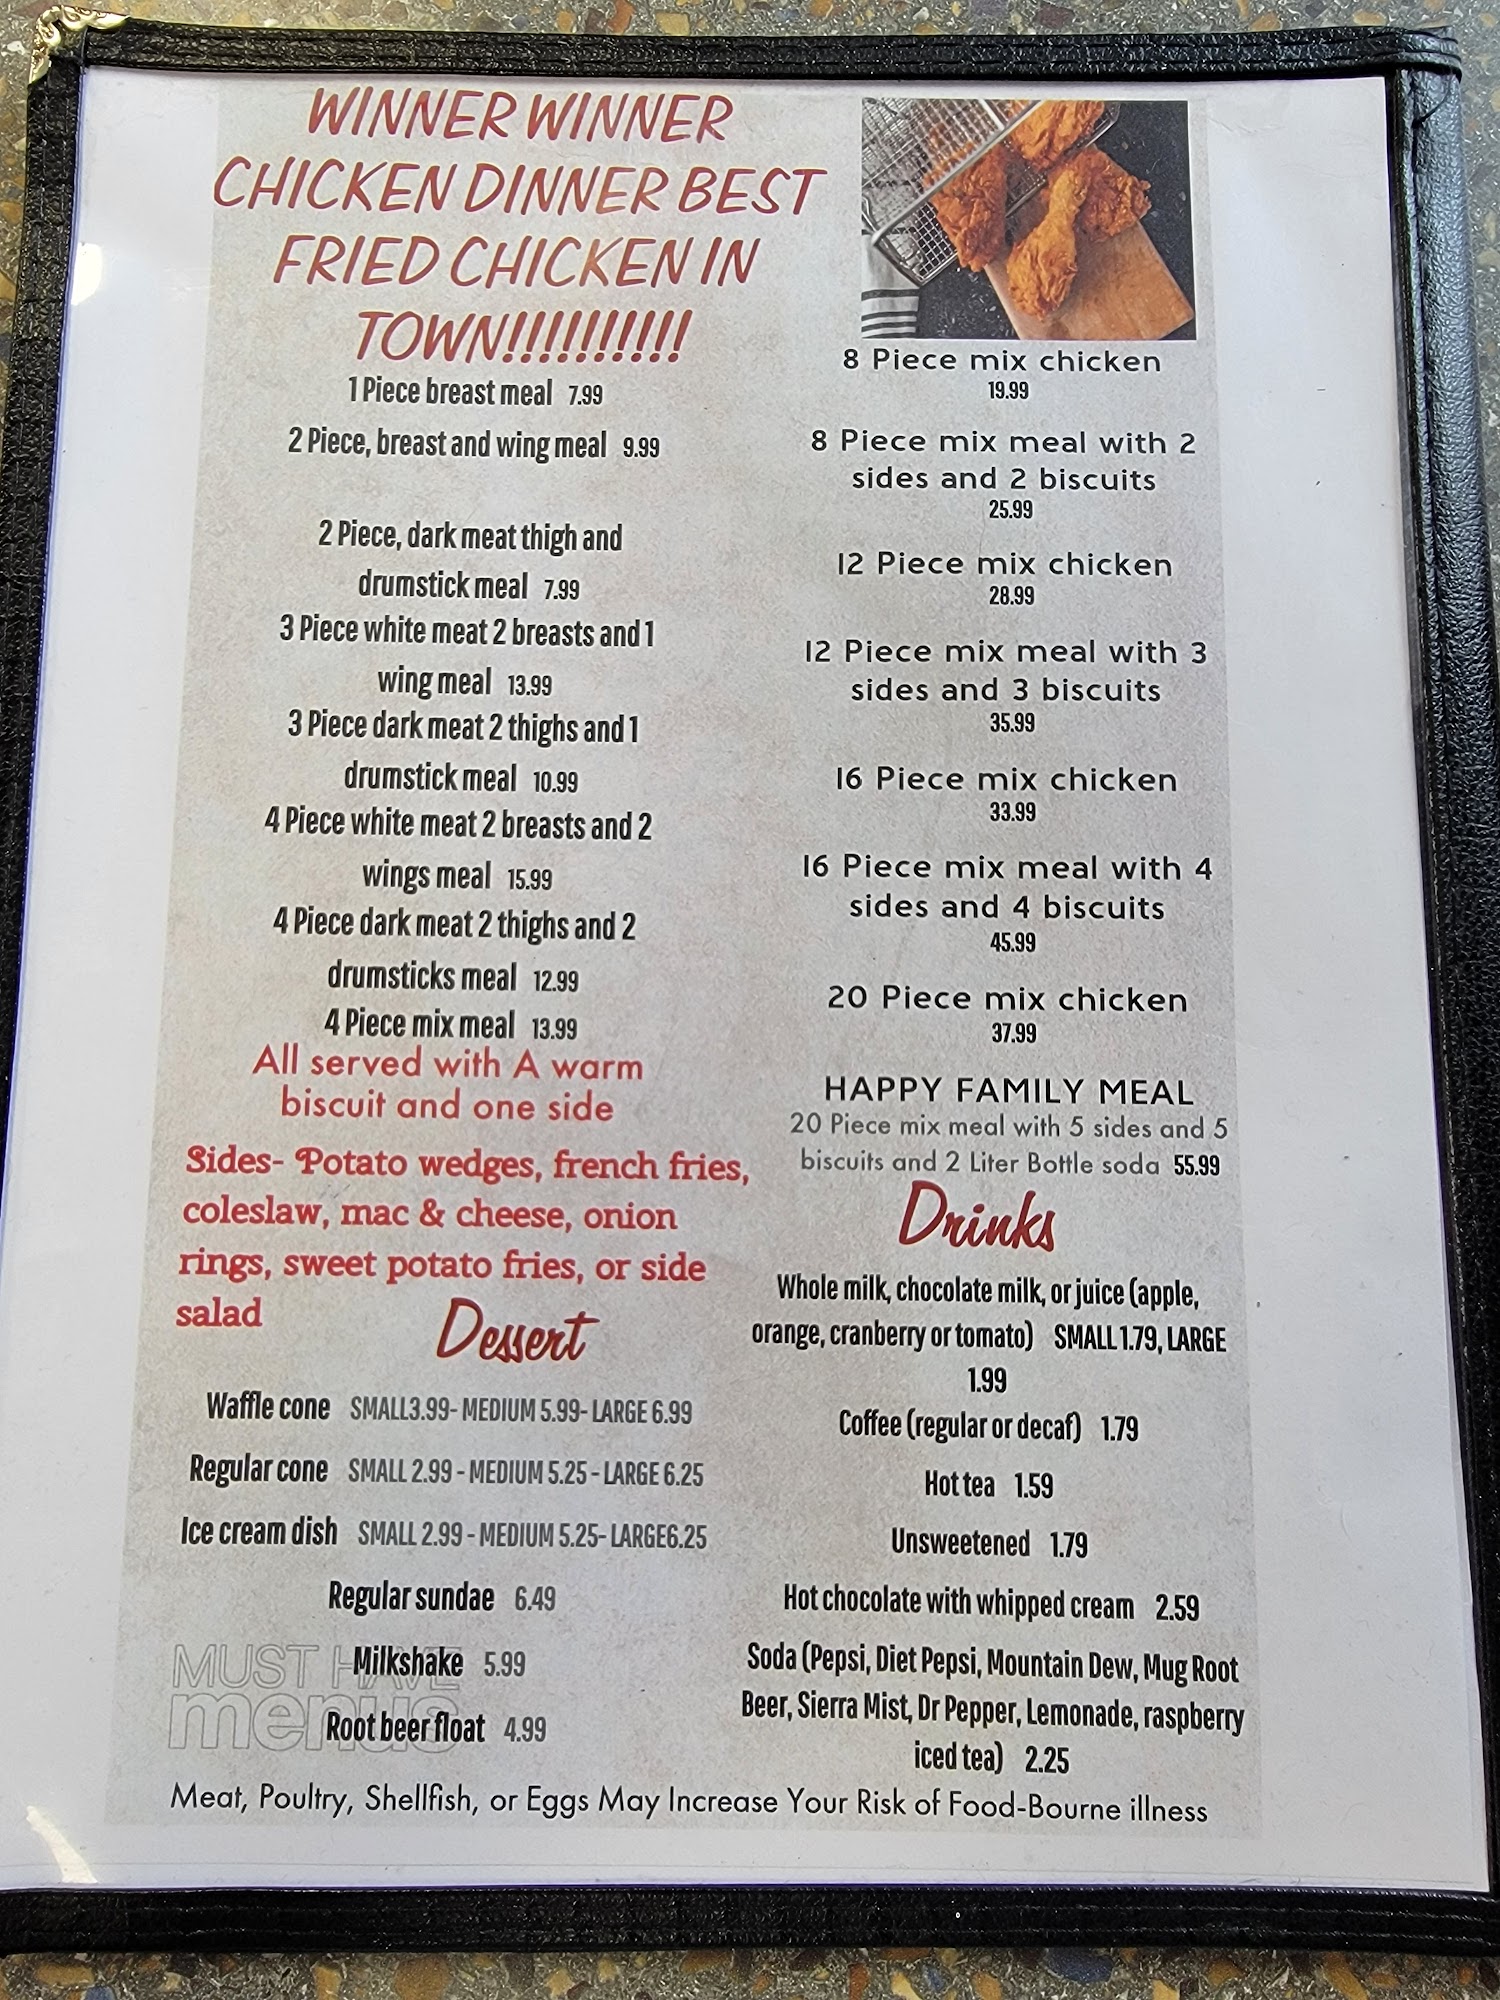 WINNER WINNER
CHICKEN DINNER BEST
FRIED CHICKEN IN
TOWN!!!!!!!!!!
1 Piece breast meal 7.99
2 Piece, breast and wing meal 9.99
2 Piece, dark meat thigh and
drumstick meal 7.99
3 Piece white meat 2 breasts and 1
wing meal 13.99
3 Piece dark meat 2 thighs and 1
drumstick meal 10.99
4 Piece white meat 2 breasts and 2
wings meal 15.99
4 Piece dark meat 2 thighs and 2
drumsticks meal 12.99
4 Piece mix meal 13.99
All served with A warm
biscuit and one side
Sides- Potato wedges, french fries,
coleslaw, mac & cheese, onion
rings, sweet potato fries, or side
salad
Dessert
Waffle cone SMALL3.99- MEDIUM 5.99- LARGE 6.99
Regular cone SMALL 2.99 - MEDIUM 5.25 - LARGE 6.25
Ice cream dish SMALL 2.99 - MEDIUM 5.25- LARGE6.25
Regular sundae 6.49
Milkshake 5.99
Root beer float 4.99
MUST HAVE
menus
8 Piece mix chicken
19.99
8 Piece mix meal with 2
sides and 2 biscuits
25.99
12 Piece mix chicken
28.99
12 Piece mix meal with 3
sides and 3 biscuits
35.99
16 Piece mix chicken
33.99
16 Piece mix meal with 4
sides and 4 biscuits
45.99
20 Piece mix chicken
37.99
HAPPY FAMILY MEAL
20 Piece mix meal with 5 sides and 5
biscuits and 2 Liter Bottle soda 55.99
Drinks
Whole milk, chocolate milk, or juice (apple,
orange, cranberry or tomato) SMALL 1.79, LARGE
1.99
Coffee (regular or decaf) 1.79
Hot tea 1.59
Unsweetened 1.79
Hot chocolate with whipped cream 2.59
Soda (Pepsi, Diet Pepsi, Mountain Dew, Mug Root
Beer, Sierra Mist, Dr Pepper, Lemonade, raspberry
iced tea) 2.25
Meat, Poultry, Shellfish, or Eggs May Increase Your Risk of Food-Bourne illness